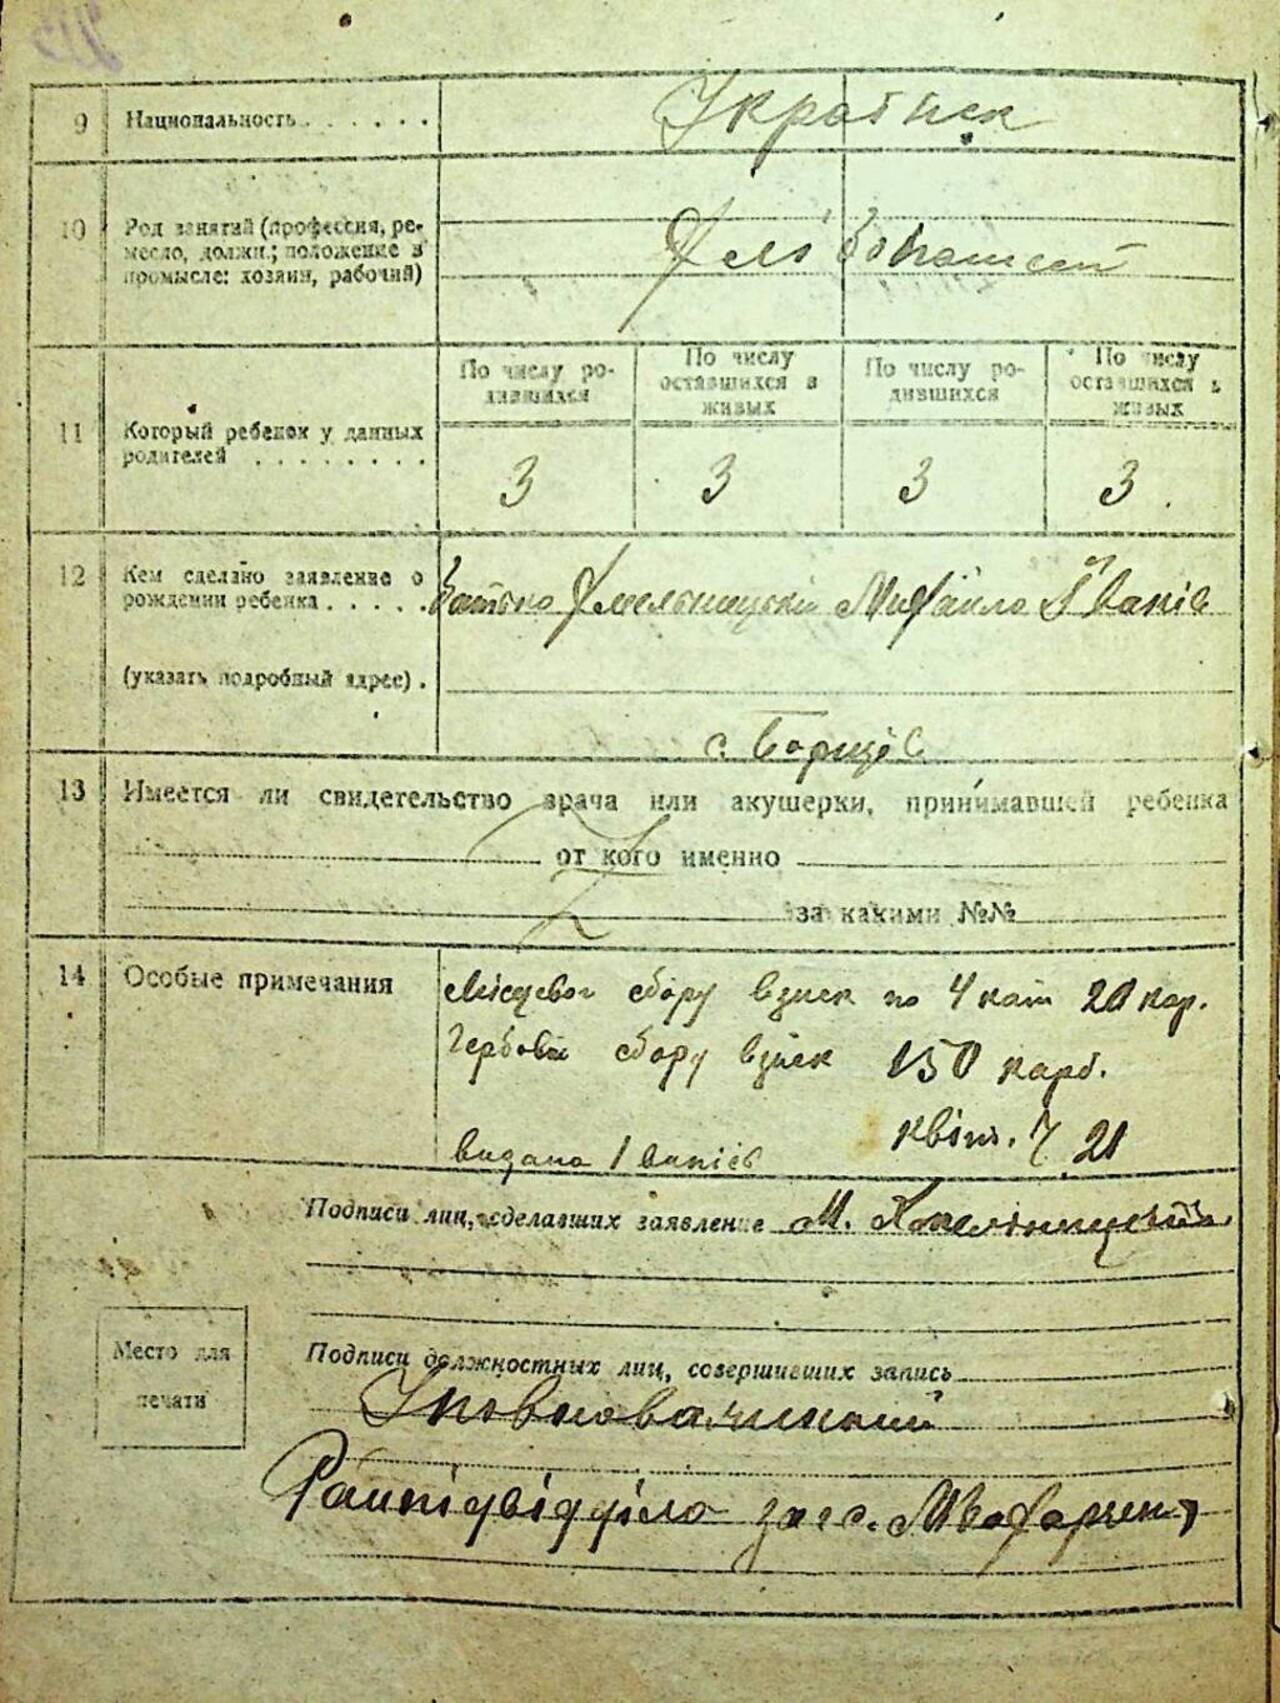 9 Национальность . . . . . . Україпск
10 Род занятий (профессия, ре-
месло, должн.; положение в
промысле: хозяин, рабочий)
По числу ро-
дившихся
По числу
оставшихся в
живых
По числу ро-
дившихся
По числу
оставшихся в
живых
11 Который ребенок у данных
родителей . . . . . . . .
3 3 3 3
12 Кем сделано заявление о
рождении ребенка . . . . . Батько Хмельницький Михайло Іванів
(указать подробный адрес) .
с. Борщів
13 Имеется ли свидетельство врача или акушерки, принимавшей ребенка
от кого именно
за какими №№
14 Особые примечания
Місцевог збору взиск по 4 кат 20 кар.
Гербовий збору взиск 150 карб.
квіт. 7 21
видано 1 витів
Подписи лиц, сделавших заявление М. Хмельницький
Место для
печати
Подписи должностных лиц, совершивших запись
Уповноважиний
Райпідвідділа загс.